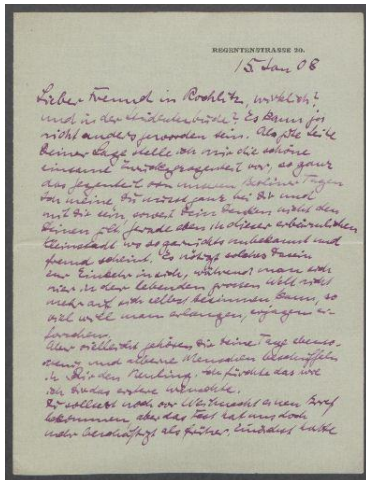 REGENTENSTRASSE 20.
15. Jan 08
Lieber Freund in Rochlitz, wirklich?
und in der Studentenbude? Es kann ja
nicht anders geworden sein. Als gute Seite
Deiner Lage stelle ich mir die schöne
einsame Zurückgezogenheit vor, so ganz
das Gegenteil von unseren Berliner Tagen
Ich meine, Du musst ganz bei Dir und
mit Dir sein, soweit Dein Denken nicht den
Deinen gilt gerade eben in dieser erbärmlichen
Kleinstadt wo so garnichts unbekannt und
fremd scheint. Es nötigt solches Dasein
zur Einkehr in sich, während man sich
hier in der lebenden grossen Welt nicht
mehr auf sich selbst besinnen kann, so
viel will man erlangen, erjagen
Aber vielleicht gehören Dir Deine Tage
und Menschen
in Dir den ich fürchte das wo
ich Dir das erstere wünschte.
Du solltest noch vor Weihnacht einen Brief
bekommen aber das Fest hat uns doch
mehr beschäftigt als früher. hatte